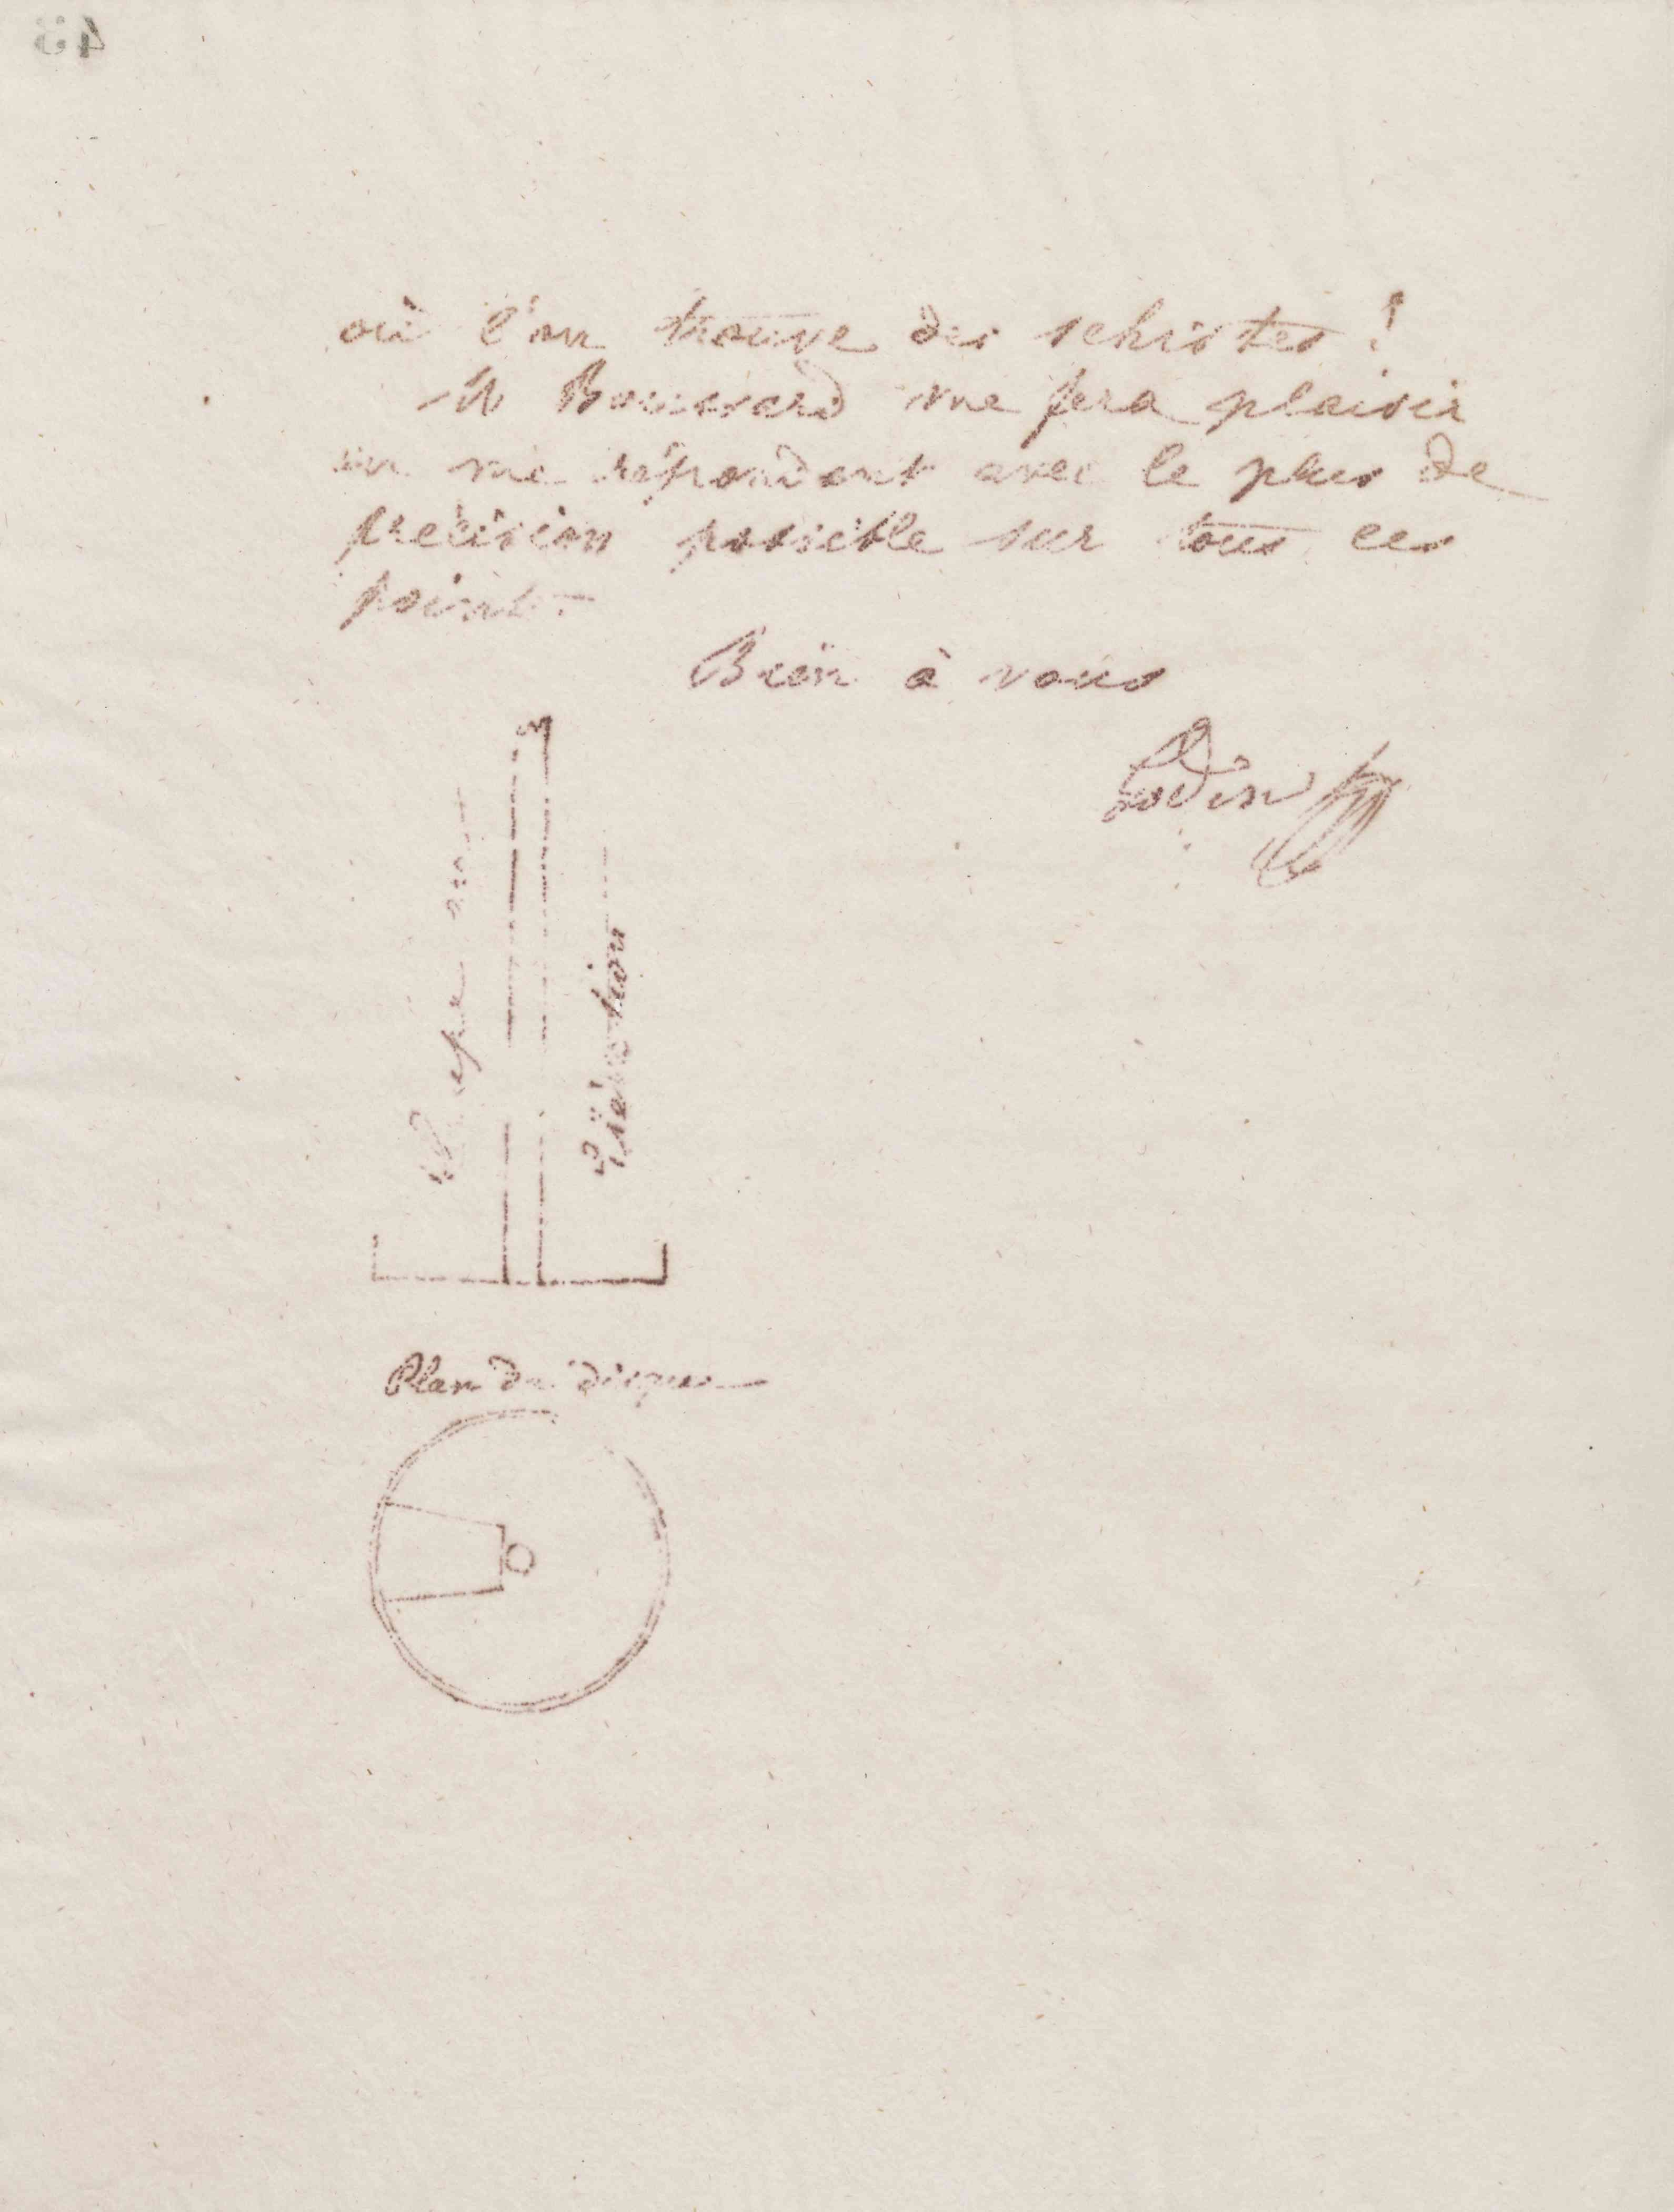 où l'on trouve des schistes !
M Boussard me fera plaisir
en me répondant avec le plus de
precision possible sur tous ces
points
Bien à vous
Godin
Elévation
Plan du disque